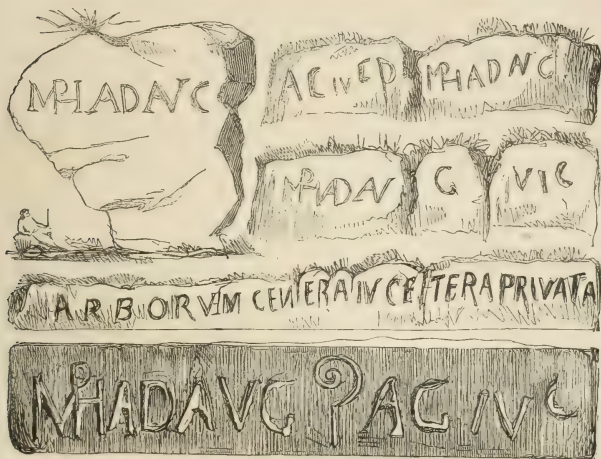 MPHADAVC
AGIVCP MPHADNC
MPHADAV G VIG
ARBORVM GENERA IV CETERA PRIVATA
MPHADAVG AGIVC